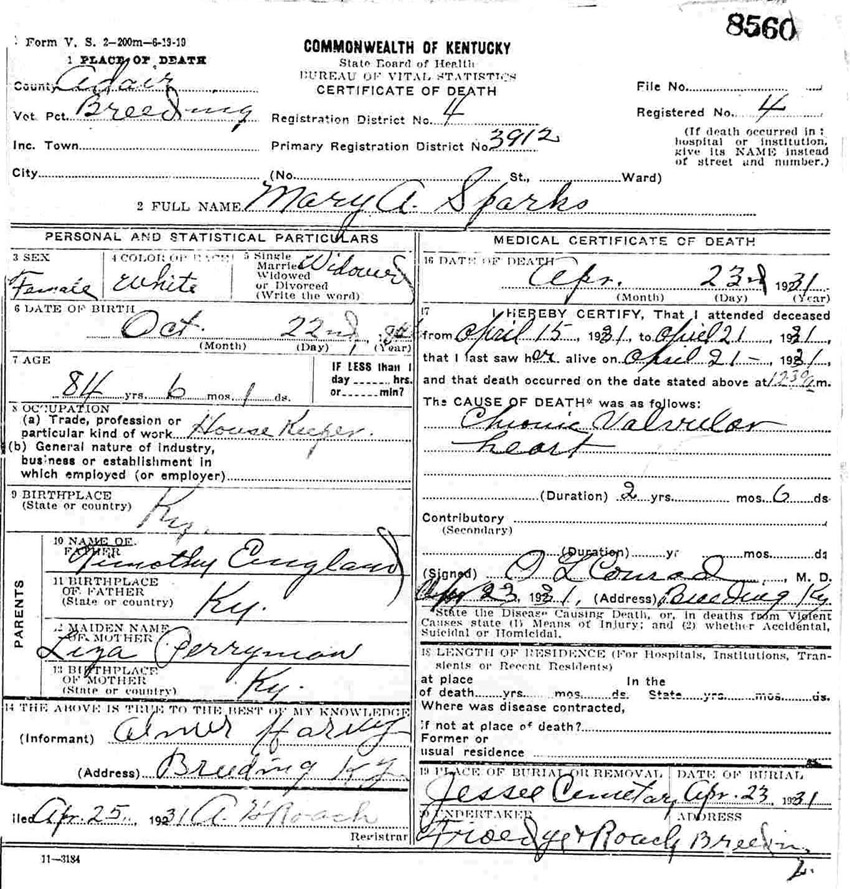 8560
Form V. S. 2-200m-6-19-19
COMMONWEALTH OF KENTUCKY
State Board of Health
BUREAU OF VITAL STATISTICS
CERTIFICATE OF DEATH
1 PLACE OF DEATH
County Adair
Vot. Pct. Breeding
Inc. Town
City
Registration District No. 4
Primary Registration District No. 3912
(No. St., Ward)
File No.
Registered No. 4
(If death occurred in a
hospital or institution,
give its NAME instead
of street and number.)
2 FULL NAME Mary A. Sparks
PERSONAL AND STATISTICAL PARTICULARS
3 SEX
Female
4 COLOR OR RACE
White
5 Single
Married
Widowed
or Divorced
(Write the word)
Widowed
6 DATE OF BIRTH
Oct. 22nd, 1
(Month) (Day) (Year)
7 AGE
84 yrs. 6 mos. 1 ds.
IF LESS than 1
day ...... hrs.
or ...... min?
8 OCCUPATION
(a) Trade, profession or
particular kind of work House Keeper.
(b) General nature of industry,
business or establishment in
which employed (or employer)
9 BIRTHPLACE
(State or country)
Ky.
PARENTS
10 NAME OF
FATHER
Timothy England
11 BIRTHPLACE
OF FATHER
(State or country)
Ky.
12 MAIDEN NAME
OF MOTHER
Liza Perryman
13 BIRTHPLACE
OF MOTHER
(State or country)
Ky.
14 THE ABOVE IS TRUE TO THE BEST OF MY KNOWLEDGE
(Informant) Hardy
(Address) Breeding Ky
Filed Apr. 25, 1931 Roach
Registrar
11-3184
MEDICAL CERTIFICATE OF DEATH
16 DATE OF DEATH
Apr. 23rd 1931
(Month) (Day) (Year)
17 I HEREBY CERTIFY, That I attended deceased
from April 15, 1931, to April 21, 1931,
that I last saw her alive on April 21-, 1931,
and that death occurred on the date stated above at m.
The CAUSE OF DEATH* was as follows:
Chronic Valvular
heart
(Duration) 2 yrs. mos. 6 ds.
Contributory
(Secondary)
(Duration) yr. mos. ds
(Signed) O L Conrad, M. D.
Apr 23, 1931, (Address) Breeding Ky
*State the Disease Causing Death, or, in deaths from Violent
Causes state (1) Means of Injury; and (2) whether Accidental,
Suicidal or Homicidal.
18 LENGTH OF RESIDENCE (For Hospitals, Institutions, Tran-
sients or Recent Residents)
at place In the
of death yrs. mos. ds. State yrs. mos. ds.
Where was disease contracted,
if not at place of death?
Former or
usual residence
19 PLACE OF BURIAL OR REMOVAL
Jessee Cemetary
DATE OF BURIAL
Apr. 23, 1931
20 UNDERTAKER
ADDRESS
Roach